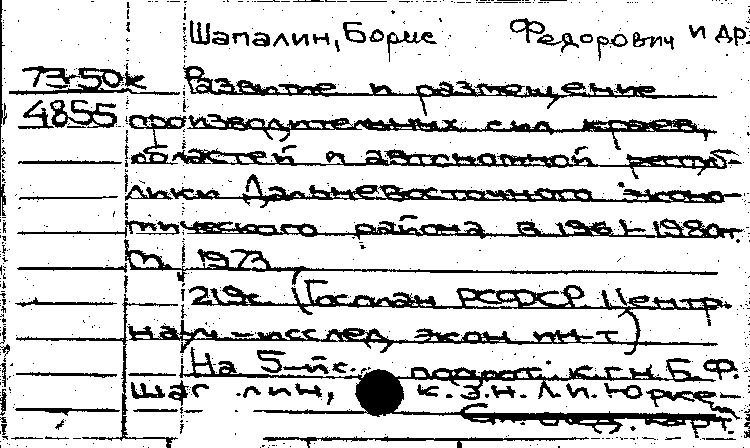 Шапалин, Борис Федорович и др.
73-50к Развитие и размещение
4855 производительных сил краев,
областей и автономной респуб-
лики Дальневосточного эконо-
мического района в 1961-1980гг.
М. 1973
219с (Госплан РСФСР Центр.
науч-исслед экон ин-т)
На 5-й с. подгот. к.г.н. Б.Ф.
Шап лин, к.э.н. Л.И. Юрке-
См. след. карт.